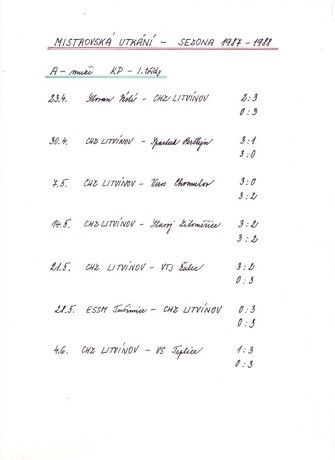 MISTROVSKÁ UTKÁNÍ - SEZONA 1987 - 1988
A - muži KP - I. třídy
23.4. Slovan - CHZ LITVÍNOV 2:3
0:3
30.4. CHZ LITVÍNOV - Spartak 3:1
3:0
7.5. CHZ LITVÍNOV - Chomutov 3:0
3:2
14.5. CHZ LITVÍNOV - Slavoj Litoměřice 3:2
3:2
21.5. CHZ LITVÍNOV - VTJ Žatec 3:2
0:3
28.5. ESSM Tušimice - CHZ LITVÍNOV 0:3
0:3
4.6. CHZ LITVÍNOV - VS Teplice 1:3
0:3